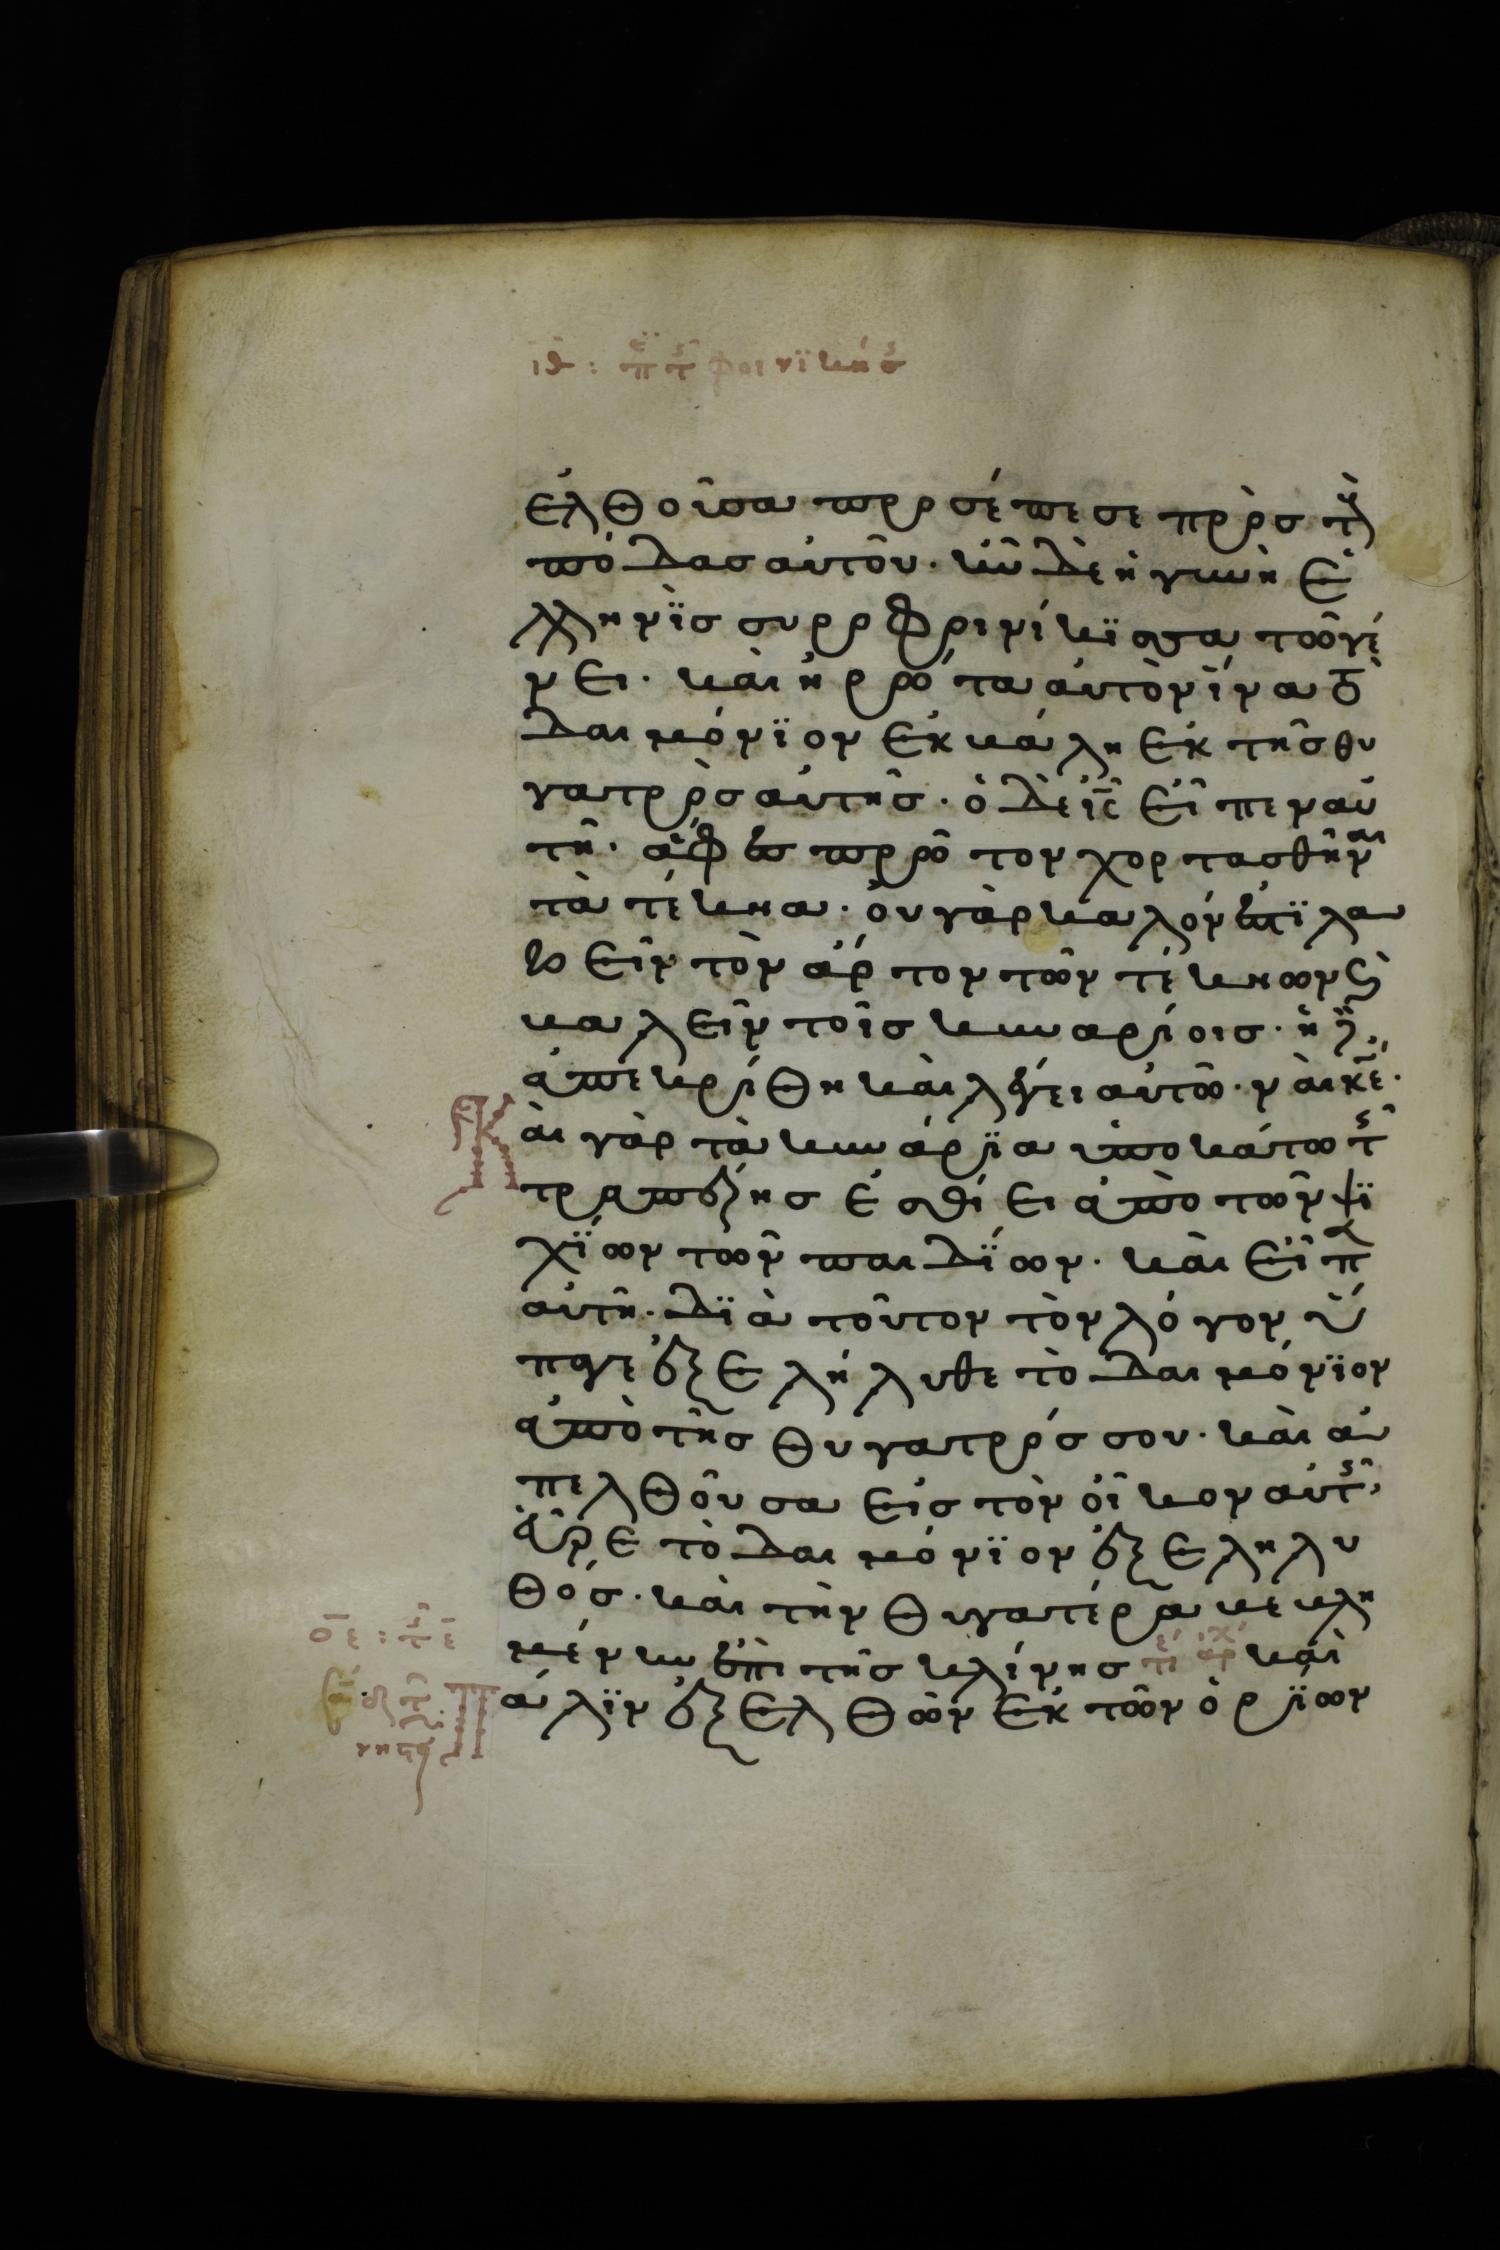 ιθ : περὶ τῆς φοινικίσσης
ἐλθοῦσα προσέπεσε πρὸς τοὺς
πόδας αὐτοῦ · ἦν δὲ ἡ γυνὴ ἑ
λληνὶς συροφοινίκισσα τῶ γέ
νει · καὶ ἠρώτα αὐτὸν ἵνα τὸ
δαιμόνιον ἐκβάλη ἐκ τῆς θυ
γατρὸς αὐτῆς · ὁ δὲ ις εἶπεν αὐ
τῆ · ἄφες πρῶτον χορτασθῆναι
τὰ τέκνα · οὐ γὰρ καλόν ἐστι λα
βεῖν τὸν ἄρτον τῶν τέκνων καὶ
βαλεῖν τοῖς κυναρίοις · ἡ δὲ
ἀπεκρίθη καὶ λέγει αὐτῶ · ναὶ κε ·
Καὶ γὰρ τὰ κυνάρια ὑποκάτω τῆς
τραπέζης ἐσθίει ἀπὸ τῶν ψι
χίων τῶν παιδίων · καὶ εἶπεν
αὐτῆ · διὰ τοῦτον τὸν λόγον ὕ
παγε ἐξελήλυθε τὸ δαιμόνιον
ἀπὸ τῆς θυγατρός σου · καὶ ἀ
πελθοῦσα εἰς τὸν οἶκον αὐτῆς,
εὗρε τὸ δαιμόνιον ἐξεληλυ
θός · καὶ τὴν θυγατέρα βεβλη
μένην ἐπὶ τῆς κλίνης τέλος ἀρχή καὶ
Πάλιν ἐξελθὼν ἐκ τῶν ὁρίων